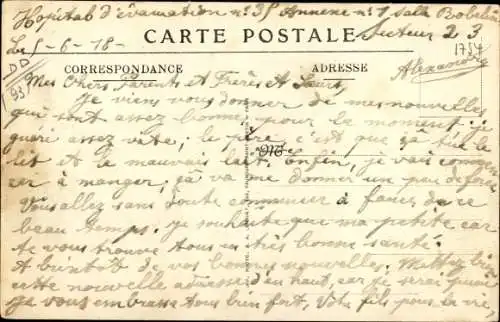 Hôpital d'évacuation n° 35 Annexe n° 1 Salle Bobelin
Le 5-6-18- Secteur 23
CARTE POSTALE
1754
CORRESPONDANCE ADRESSE
DD
93
Mes Chers Parents et Frères et Sœurs,
Je viens vous donner de mes nouvelles
qui sont assez bonnes pour le moment. je
guéri assez vite; le pire c'est que ça tue le
lit et le mauvais lait. Enfin, je vais commen
cer à manger, çà va me donner un peu de force
Vous allez sans doute commencer à faner de ce
beau temps. je souhaite que ma petite car
te vous trouve tous en très bonne santé.
A bientôt de vos bonnes nouvelles. Mettez bien
cette nouvelle adresse d'en haut, car je serai
Je vous embrasse tous bien fort, Votre fils pour la vie,